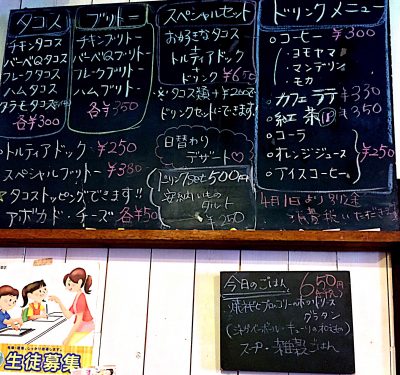 タコス
チキンタコス
バーベQタコス
フレークタコス
ハムタコス
タラモタコス
各¥300
ブリトー
チキンブリトー
バーベQブリトー
フレークブリトー
ハムブリトー
各¥350
スペシャルセット
お好きなタコス
+
トルティアドック
+
ドリンク ¥650
※タコス類+¥200で
ドリンクセットにできます!
ドリンクメニュー
○コーヒー ¥300
・コモヤマ
・マンデリン
・モカ
○カフェラテ ¥330
○紅茶 ¥350
○コーラ
○オレンジジュース
○アイスコーヒー
¥250
○トルティアドック ¥250
スペシャルブリトー ¥380
☆タコストッピングできます!!
アボカド・チーズ 各¥50
日替わり
デザート♡
ドリンクset 500円
安納いもの
タルト
¥250
4月1日より別途
消費税
今日のごはん
650円
グラタン
スープ・雑穀ごはん
生徒募集